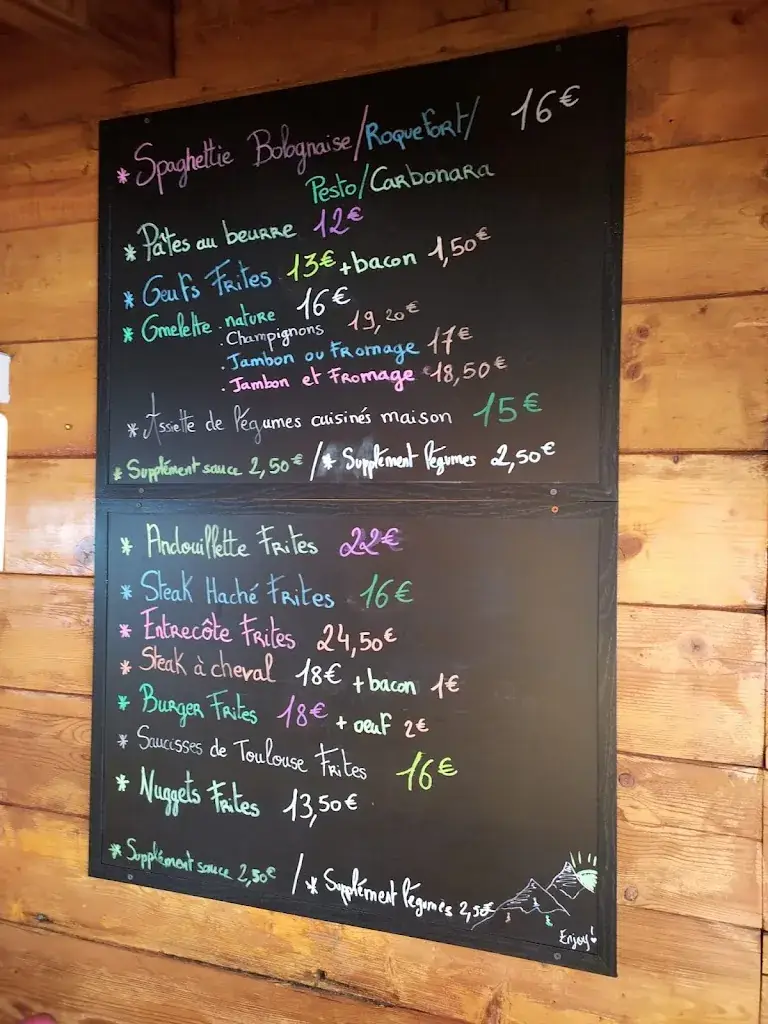 * Spaghettie Bolognaise/Roquefort/ 16€
Pesto/Carbonara
* Pâtes au beurre 12€
* Oeufs Frites 13€ +bacon 1,50€
* Omelette . nature 16€
. Champignons 19,20€
. Jambon ou Fromage 17€
. Jambon et Fromage 18,50€
* Assiette de légumes cuisinés maison 15€
* Supplément sauce 2,50€ / * Supplément légumes 2,50€
* Andouillette Frites 22€
* Steak Haché Frites 16€
* Entrecôte Frites 24,50€
* Steak à cheval 18€ + bacon 1€
* Burger Frites 18€ + oeuf 2€
* Saucisses de Toulouse Frites 16€
* Nuggets Frites 13,50€
* Supplément sauce 2,50€ / * Supplément légumes 2,50€
Enjoy!